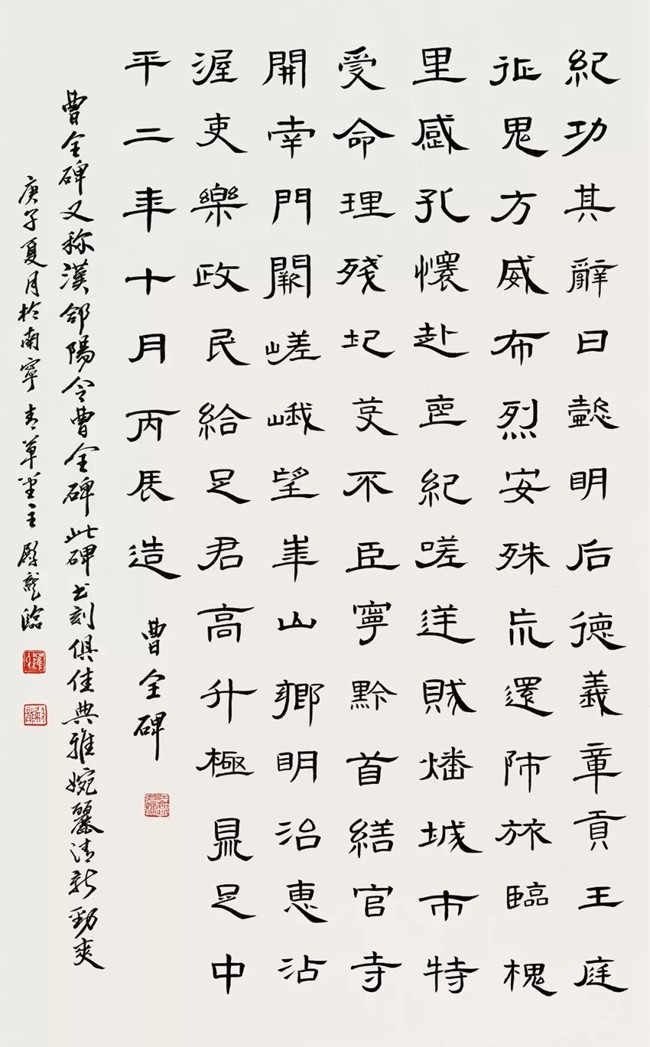 紀功其辭曰懿明后德義章貢王庭
征鬼方威布烈安殊荒還師旅臨槐
里感孔懷赴喪紀嗟逆賊燔城市特
受命理殘圯芟不臣寧黔首繕官寺
開南門闕嵯峨望華山鄉明治惠沾
渥吏樂政民給足君高升極鼎足中
平二年十月丙辰造
曹全碑
曹全碑又称漢郃陽令曹全碑此碑书刻俱佳典雅婉麗清新勁爽
庚子夏月於南寧青草堂主龍臨